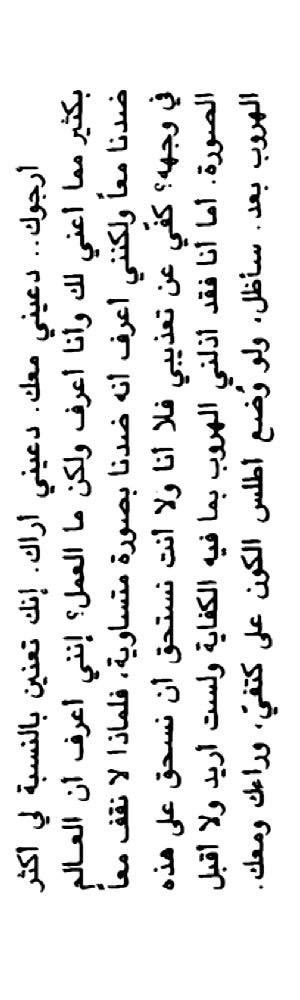 أرجوك.. دعيني معك. دعيني أراك. إنك تعنين بالنسبة لي أكثر
بكثير مما أعني لك وأنا أعرف ولكن ما العمل؟ إنني أعرف أن العالم
ضدنا معاً ولكنني أعرف أنه ضدنا بصورة متساوية، فلماذا لا نقف معاً
في وجهه؟ كفّي عن تعذيبي فلا أنا ولا أنت نستحق أن نسحق على هذه
الصورة. أما أنا فقد أذلني الهروب بما فيه الكفاية ولست أريد ولا أقبل
الهروب بعد. سأظل، ولو وُضع أطلس الكون على كتفيّ، وراءك ومعك.